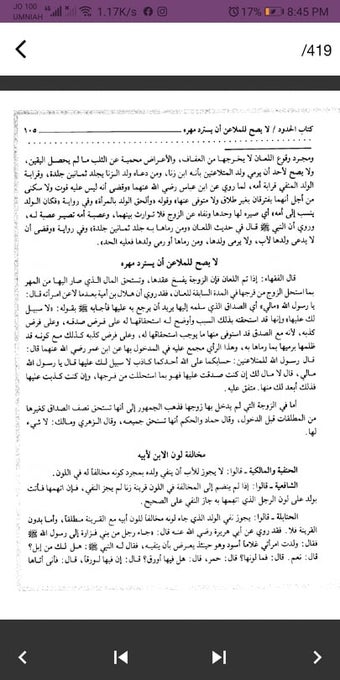 JO 100
UMNIAH
1.17K/s
17%
8:45 PM
/419
كتاب الحدود / لا يصح للملاعن أن يسترد مهره
١٠٥
ومجرد وقوع اللعان لا يخرجها من العفاف، والأعراض محمية عن الثلب ما لم يحصل اليقين،
ولا يصح لأحد أن يرمي ولد المتلاعنين بأنه ابن زنا، ومن دعاه ولد الزنا يجلد ثمانين جلدة، وقرابة
الولد المنفي قرابة أمه، لما روي عن ابن عباس رضي الله عنهما وقضى أنه ليس عليه قوت ولا سكنى
من أجل أنهما يفترقان بغير طلاق ولا متوفى عنها» وقوله «وألحق الولد بالمرأة» وفي رواية «فكان الولد
ينسب إلى أمه» أي صيره لها وحدها ونفاه عن الزوج فلا توارث بينهما، وعصبة أمه تصير عصبة له،
وروي أن النبي ﷺ قال في حديث اللعان «ومن رماها به جلد ثمانين جلدة» وفي رواية «وقضى أن
لا يدعى ولدها لأب، ولا يرمى ولدها، ومن رماها أو رمى ولدها فعليه الحد».
لا يصح للملاعن أن يسترد مهره
قال الفقهاء: إذا تم اللعان فإن الزوجة يفسخ عقدها، وتستحق المال الذي صار إليها من المهر
بما استحل الزوج من فرجها في المدة السابقة للعان، فقد روي أن هلال بن أمية بعدما لاعن امرأته قال:
يا رسول الله «مالي» أي الصداق الذي سلمه إليها يريد أن يرجع به عليها فأجابه ﷺ بقوله: «لا سبيل
لك عليها» وإنها قد استحقته بذلك السبب وأوضح له استحقاقها له على فرض صدقه، وعلى فرض
كذبه، لأنه مع الصدق قد استوفى منها ما يوجب استحقاقها له، وعلى فرض كذبه كذلك مع كونه قد
ظلمها برميها بما رماها به، وهذا الرأي مجمع عليه في المدخول بها عن ابن عمر رضي الله عنهما قال:
قال رسول الله للمتلاعنين: حسابكما على الله أحدكما كاذب لا سبيل لك عليها قال يا رسول الله
مالي، قال لا مال لك إن كنت صدقت عليها فهو بما استحللت من فرجها، وإن كنت كذبت عليها
فذلك أبعد لك منها. متفق عليه.
أما في الزوجة التي لم يدخل بها زوجها فذهب الجمهور إلى أنها تستحق نصف الصداق كغيرها
من المطلقات قبل الدخول، وقال حماد والحكم أنها تستحق جميعه، وقال الزهري ومالك: لا شيء
لها.
مخالفة لون الابن لأبيه
الحنفية والمالكية ـ قالوا: لا يجوز للأب أن ينفي ولده بمجرد كونه مخالفاً له في اللون.
الشافعية ـ قالوا: إذا لم ينضم إلى المخالفة في اللون قرينة زنا لم يجز النفي، فإن اتهمها فأتت
بولد على لون الرجل الذي اتهمها به جاز النفي على الصحيح.
الحنابلة ـ قالوا: يجوز نفي الولد الذي جاء لونه مخالفاً للون أبيه مع القرينة مطلقاً، وأما بدون
القرينة فلا. فقد روي عن أبي هريرة رضي الله عنه قال: «جاء رجل من بني فزارة إلى رسول الله ﷺ
فقال: ولدت امرأتي غلاماً أسود وهو حينئذ يعرض بأن ينفيه، فقال له النبي ﷺ: هل لك من إبل؟
قال: نعم. قال: فما لونها؟ قال: حمر، قال: هل فيها أورق؟ قال: إن فيها لورقاً، قال: فأنى أتاها